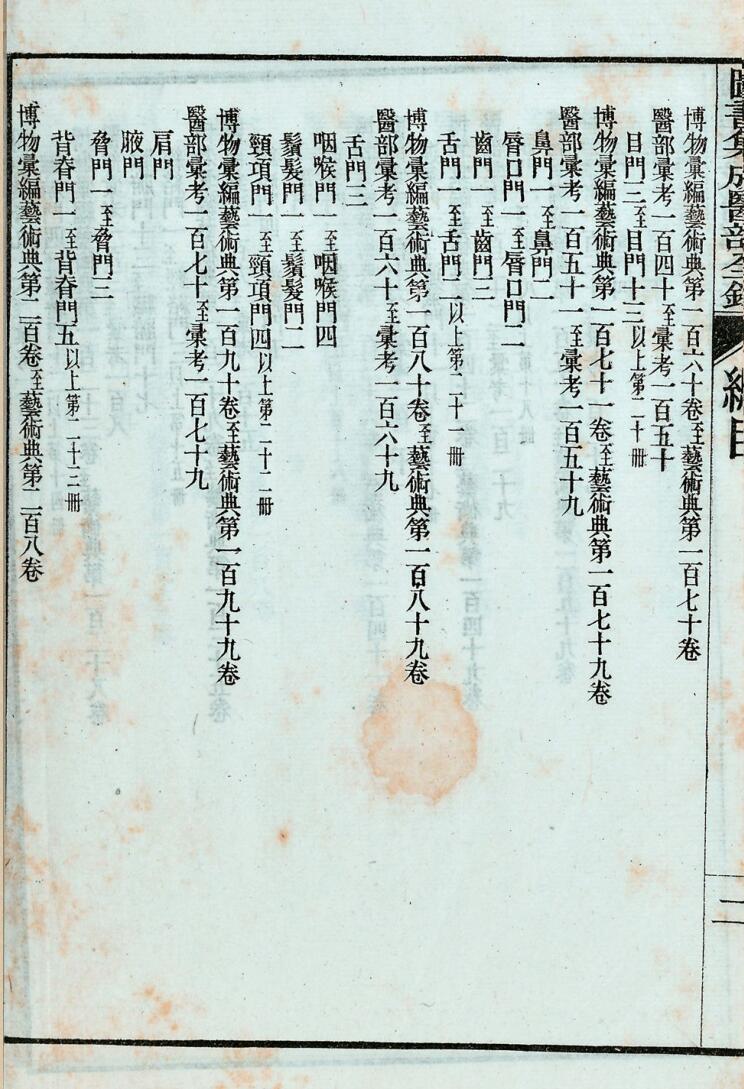 圖書集成醫部全錄 總目
二
博物彙編藝術典第一百六十卷至藝術典第一百七十卷
醫部彙考一百四十至彙考一百五十
目門三至目門十三以上第二十冊
博物彙編藝術典第一百七十一卷至藝術典第一百七十九卷
醫部彙考一百五十一至彙考一百五十九
鼻門一至鼻門二
脣口門一至脣口門二
齒門一至齒門三
舌門一至舌門二以上第二十一冊
博物彙編藝術典第一百八十卷至藝術典第一百八十九卷
醫部彙考一百六十至彙考一百六十九
舌門三
咽喉門一至咽喉門四
鬚髮門一至鬚髮門二
頸項門一至頸項門四以上第二十二冊
博物彙編藝術典第一百九十卷至藝術典第一百九十九卷
醫部彙考一百七十至彙考一百七十九
肩門
腋門
脅門一至脅門三
背脊門一至背脊門五以上第二十三冊
博物彙編藝術典第二百卷至藝術典第二百八卷